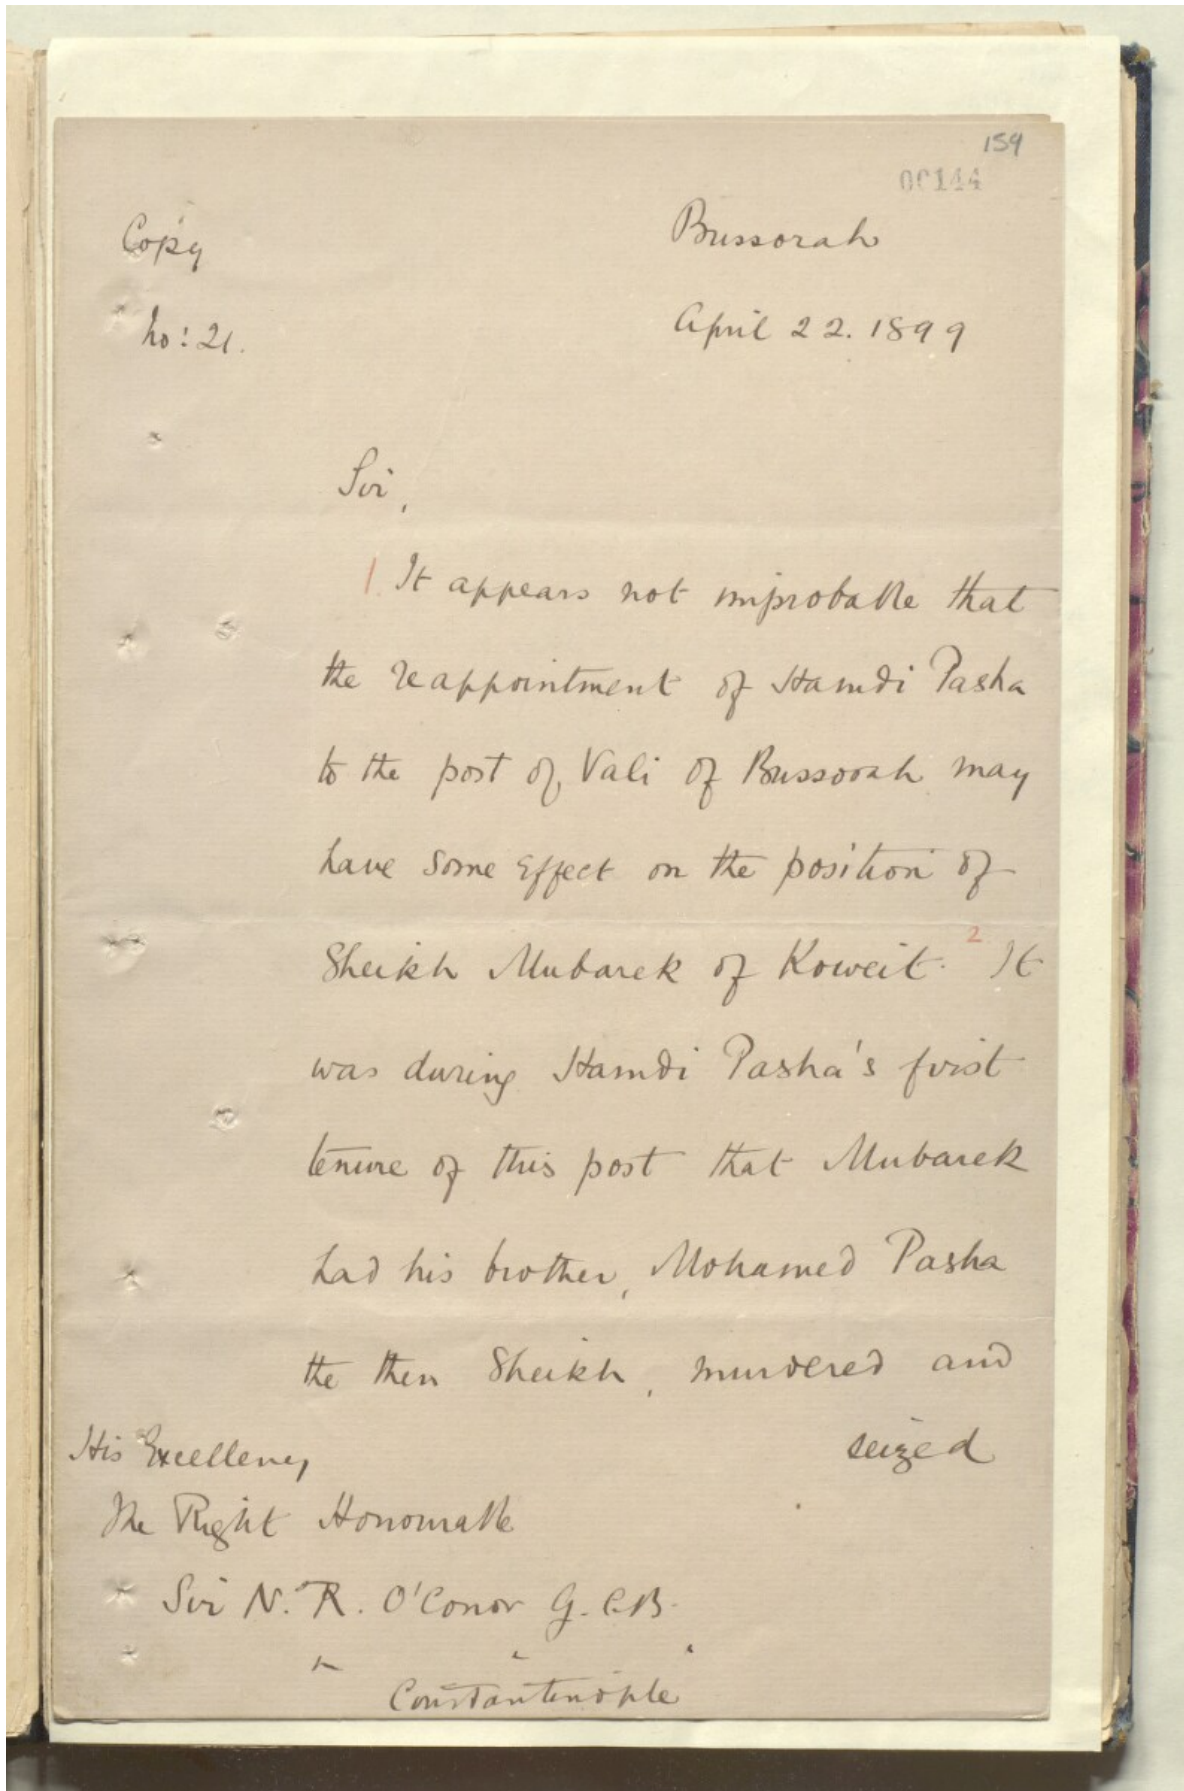 159
00144
Copy
Bussorah
No: 21.
April 22. 1899
Sir,
1. It appears not improbable that
the reappointment of Hamdi Pasha
to the post of Vali of Bussorah may
have some effect on the position of
Sheikh Mubarek of Koweit. 2 It
was during Hamdi Pasha's first
tenure of this post that Mubarek
had his brother, Mohamed Pasha
the then Sheikh, murdered and
seized
His Excellency
The Right Honourable
Sir N. R. O'Conor G.C.B.
Constantinople